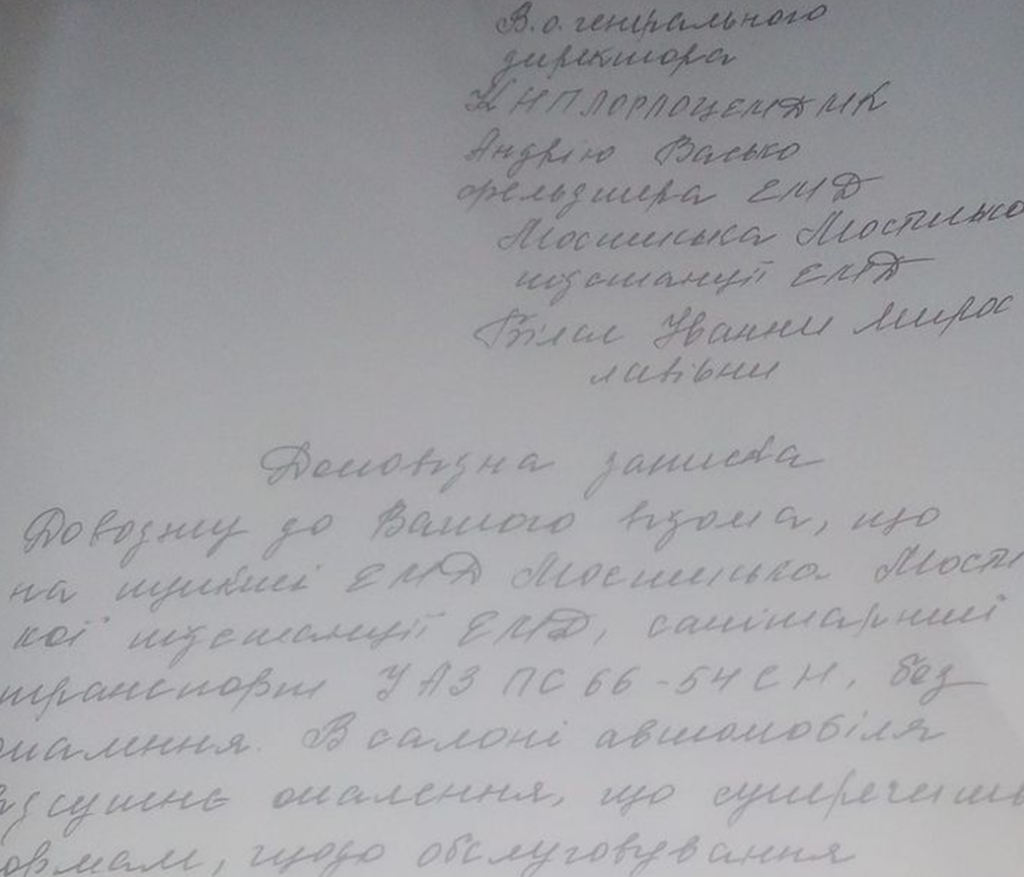 В.о. генерального
директора
КНП ЛОР ЛОЦЕМД МК
Андрію Васько
фельдшера ЕМД
Мостиська Мостисько
підстанції ЕМД
Білас Іванни Мирос
лавівни
Доповідна записка
Доводжу до Вашого відома, що
на пункті ЕМД Мостиська Мости
кої підстанції ЕМД, санітарний
транспорт УАЗ ПС 66-54 СН, без
опалення. В салоні автомобіля
відсутнє опалення, що суперечить
нормам, щодо обслуговування